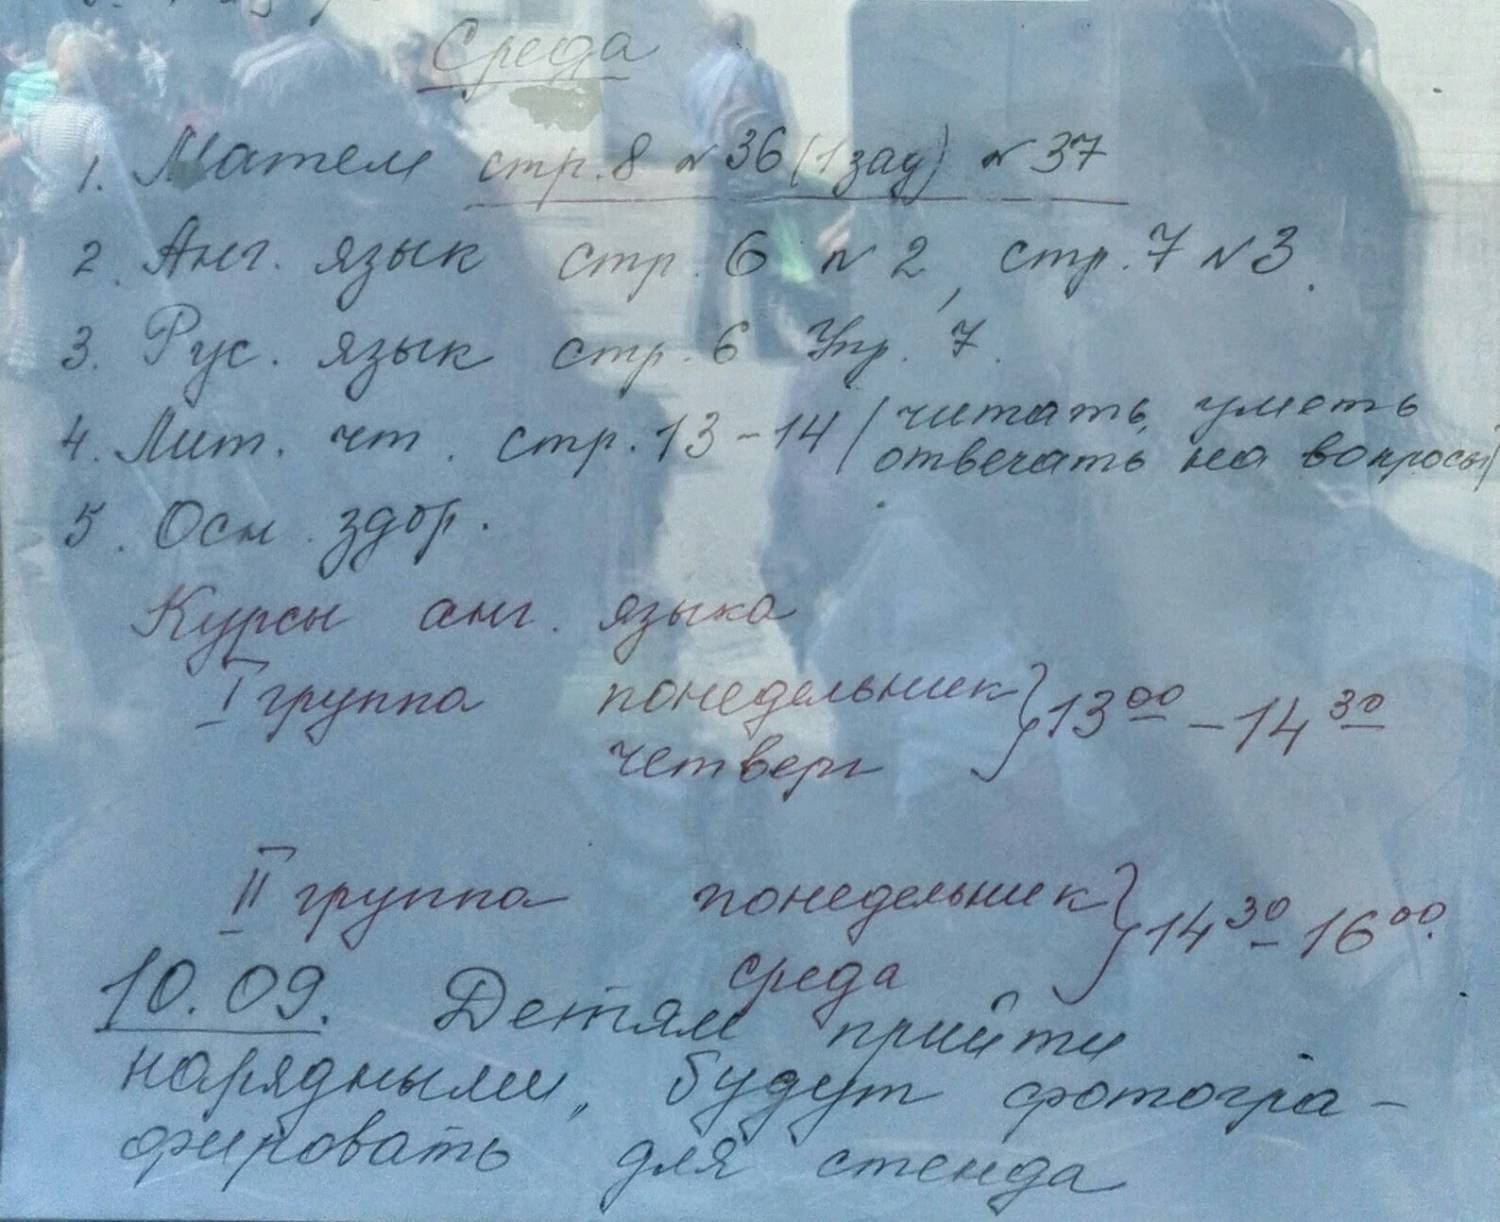 Среда
1. Матем стр. 8 № 36 (1 зад) № 37
2. Анг. язык стр. 6 № 2, стр. 7 № 3.
3. Рус. язык стр. 6 Упр. 7.
4. Лит. чт. стр. 13-14 (читать, уметь
отвечать на вопросы)
5. Осн. здор.
Курсы анг. языка
I группа понедельник } 13 00 - 14 30
четверг
II группа понедельник } 14 30 - 16 00.
среда
10.09. Детям прийти
нарядными, будут фотогра-
фировать для стенда